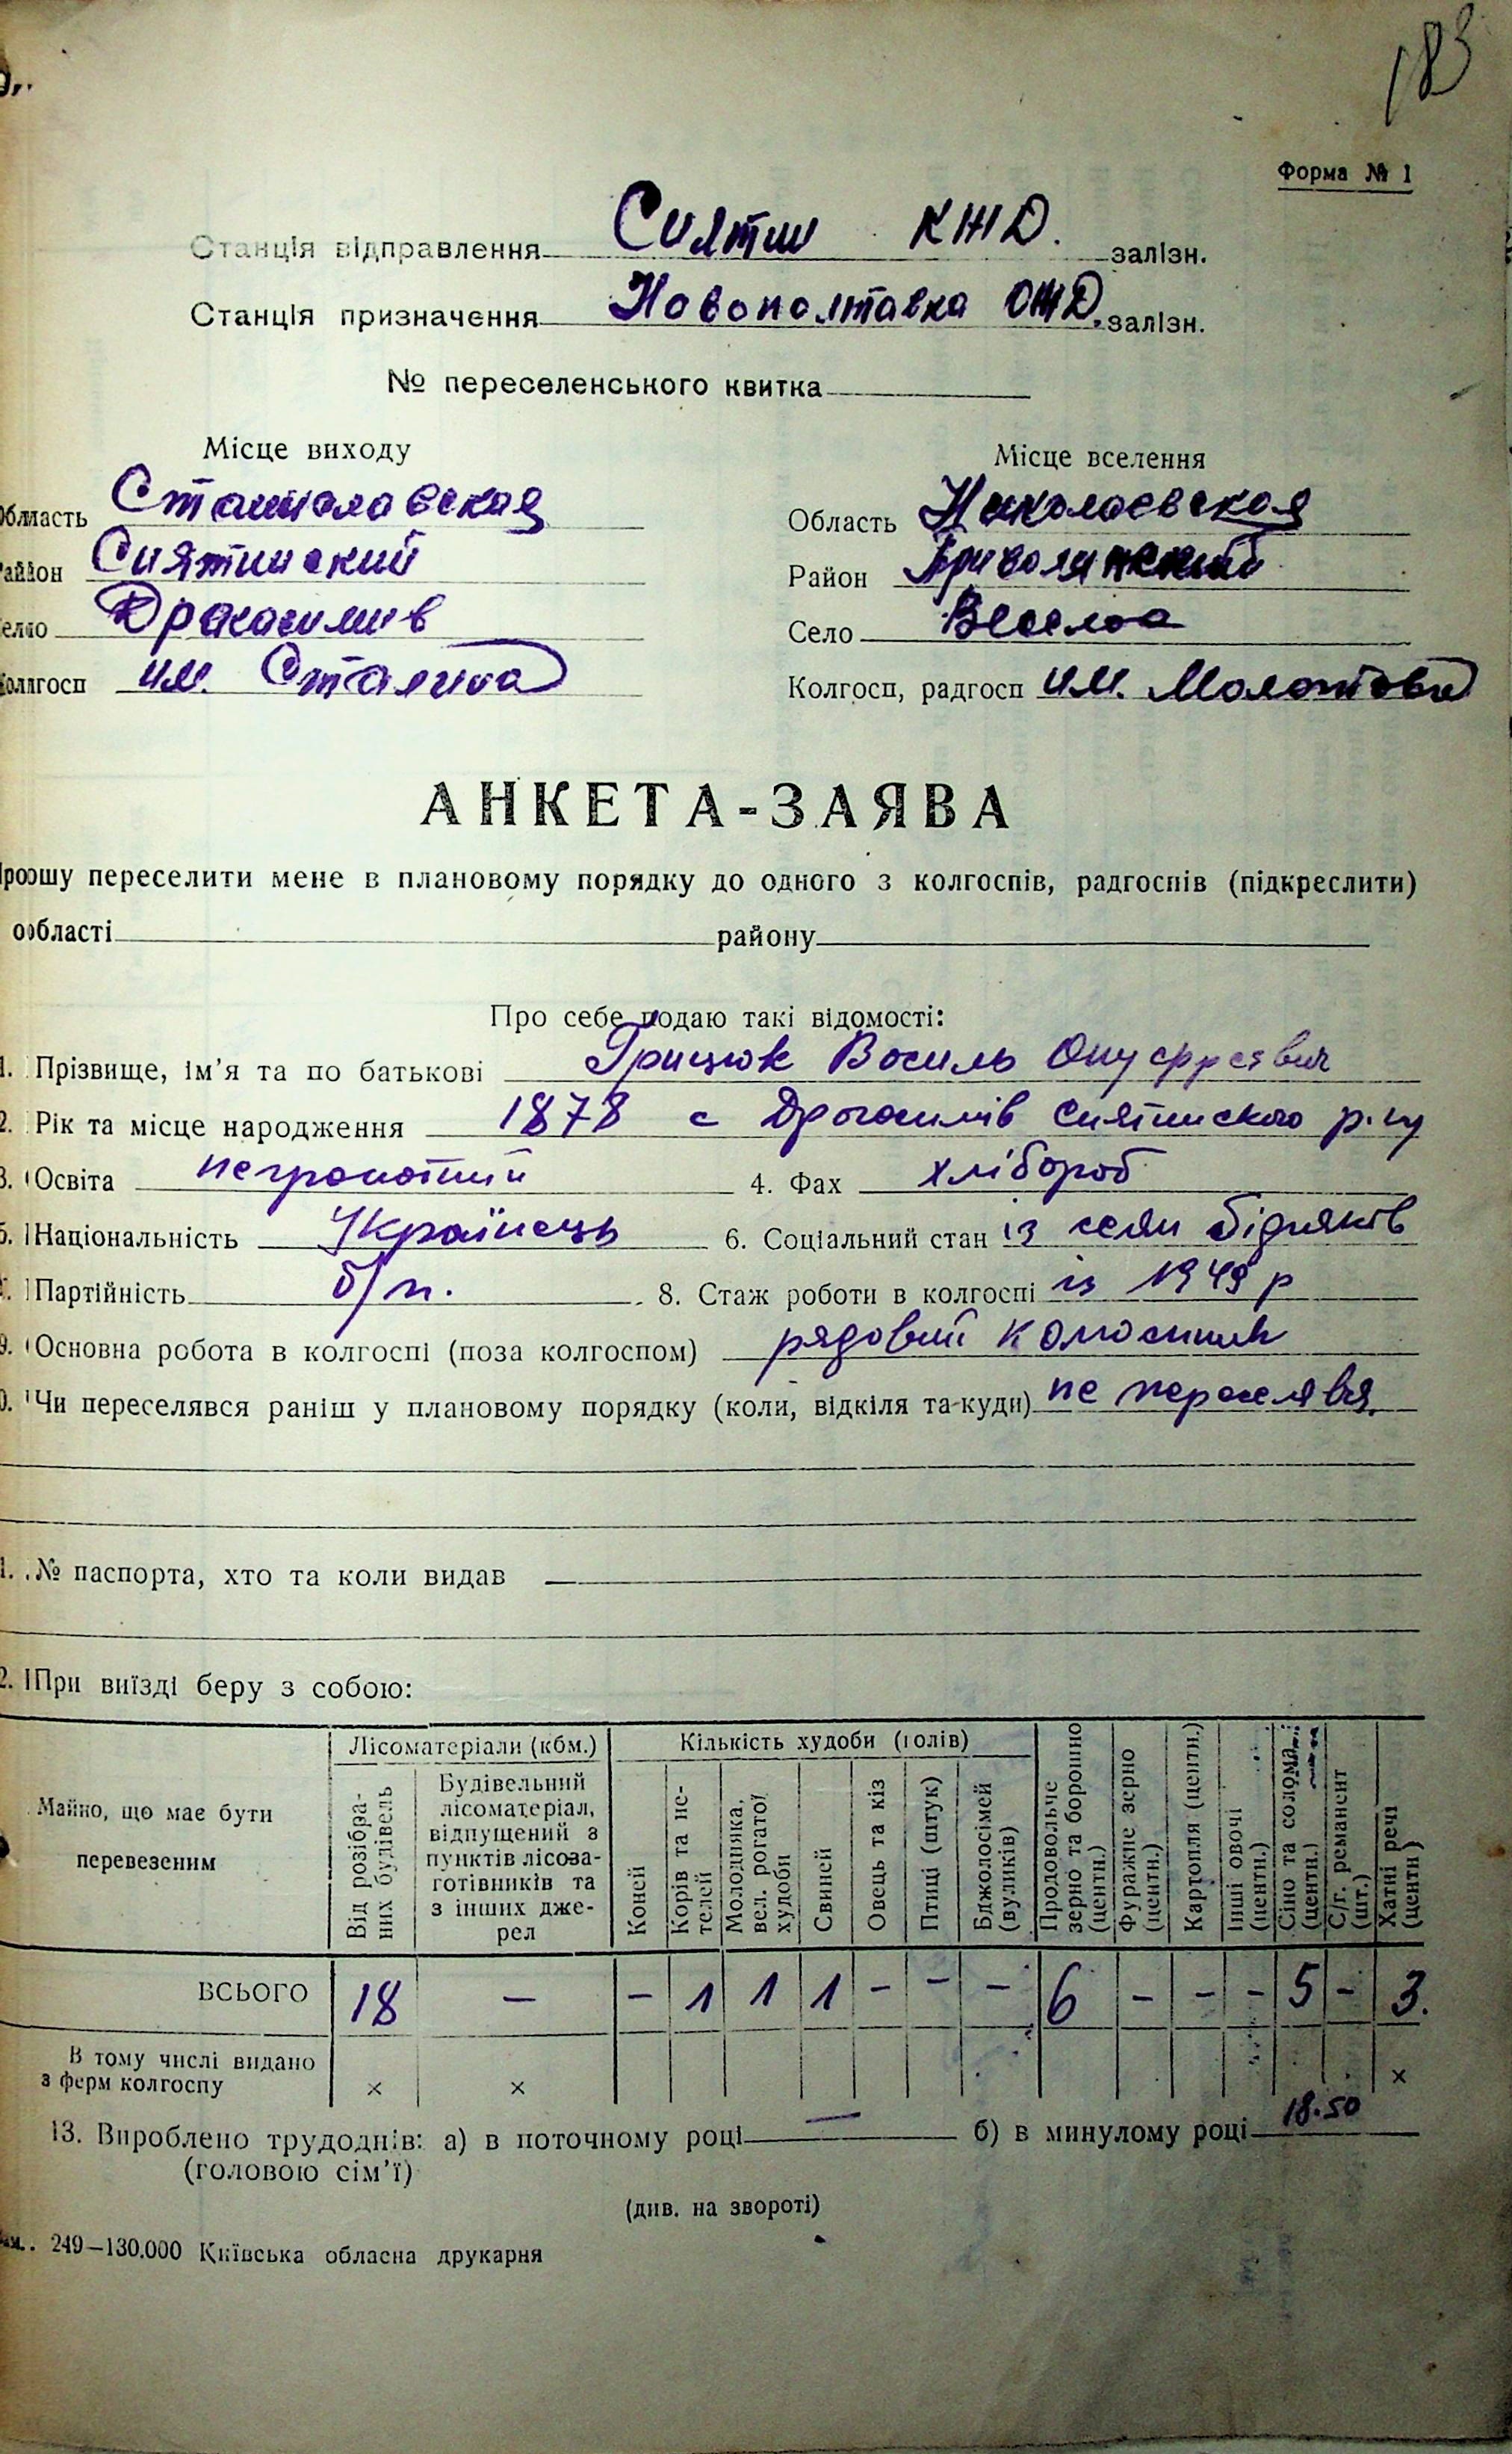 183
Форма № 1
Станція відправлення Снятин КЖД. залізн.
Станція призначення Новополтавка ОЖД. залізн.
№ переселенського квитка
Місце виходу
Місце вселення
Область Станиславская
Область Николаевская
Район Снятинский
Район Привольнянский
Село Драгасимів
Село Веселое
Колгосп им. Сталина
Колгосп, радгосп им. Молотова
АНКЕТА-ЗАЯВА
Прошу переселити мене в плановому порядку до одного з колгоспів, радгоспів (підкреслити)
області району
Про себе подаю такі відомості:
1. Прізвище, ім'я та по батькові Грицюк Василь Онуфрієвич
2. Рік та місце народження 1878 с Драгасимів Снятинского р-ну
3. Освіта неграмотний 4. Фах хлібороб
5. Національність Українець 6. Соціальний стан із селян бідняків
Партійність б/п. 8. Стаж роботи в колгоспі із 1949 р
9. Основна робота в колгоспі (поза колгоспом) рядовий
Чи переселявся раніш у плановому порядку (коли, відкіля та куди) не переселявся.
№ паспорта, хто та коли видав
2. При виїзді беру з собою:
Майно, що має бути перевезеним
Лісоматеріали (кбм.)
Від розібраних будівель
Будівельний лісоматеріал, відпущений з пунктів лісозаготівників та з інших джерел
Кількість худоби (голів)
Коней
Корів та нетелей
Молодняка, вел. рогатої худоби
Свиней
Овець та кіз
Птиці (штук)
Бджолосімей (вуликів)
Продовольче зерно та борошно (центн.)
Фуражне зерно (центн.)
Картопля (центн.)
Інші овочі (центн.)
Сіно та солома (центн.)
С/г. реманент (шт.)
Хатні речі (центн)
ВСЬОГО 18 — – 1 1 1 – – – 6 – – – 5 – 3.
В тому числі видано
з ферм колгоспу × × ×
13. Вироблено трудоднів: а) в поточному році — б) в минулому році 18.50
(головою сім'ї)
(див. на звороті)
249—130.000 Київська обласна друкарня